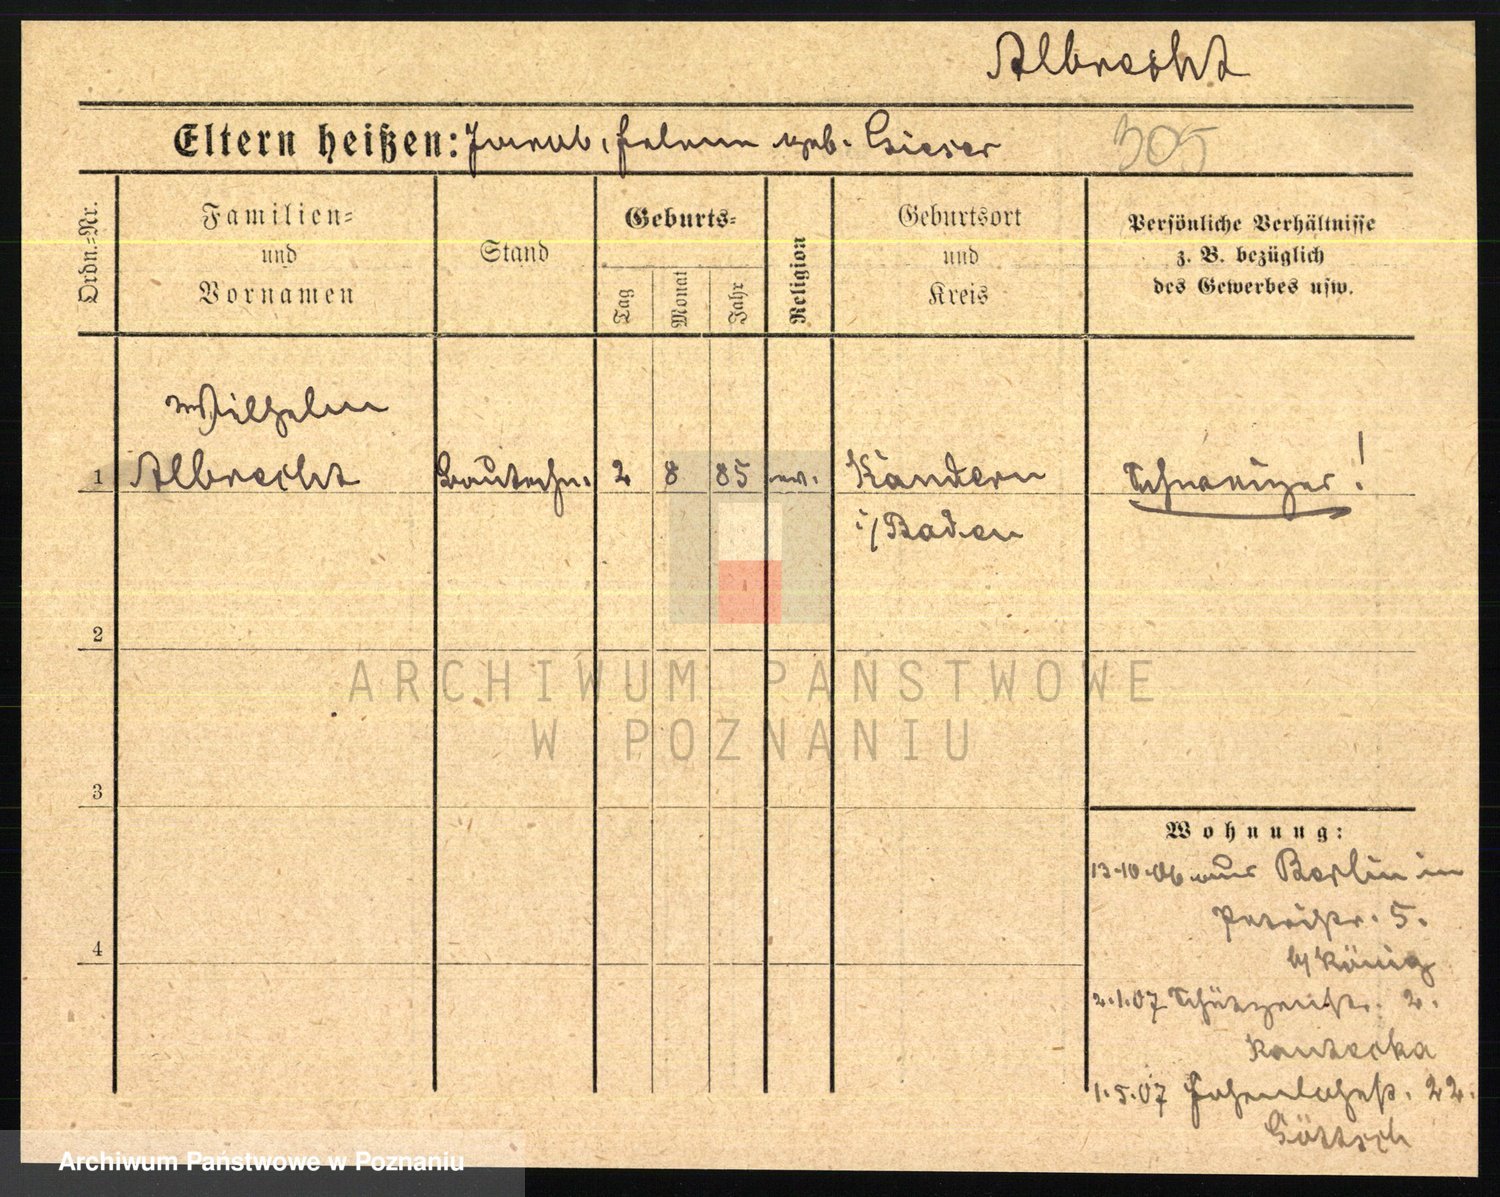 Albrecht
Eltern heißen: Jacob, Helene geb. Gieser
305
Ordn.=Nr.
Familien=
und
Vornamen
Stand
Geburts=
Tag
Monat
Jahr
Religion
Geburtsort
und
Kreis
Persönliche Verhältnisse
z. B. bezüglich
des Gewerbes usw.
Wilhelm
1 Albrecht Bautechn. 2 8 85 ev. Kandern Schweizer!
i/Baden
2
ARCHIWUM PAŃSTWOWE
W POZNANIU
3
Wohnung:
13.10.06 aus Berlin in
Petristr. 5.
b/ König
4
2.1.07 Schützenstr. 2.
1.5.07 Hohenlohestr. 22.
Göttsch
Archiwum Państwowe w Poznaniu